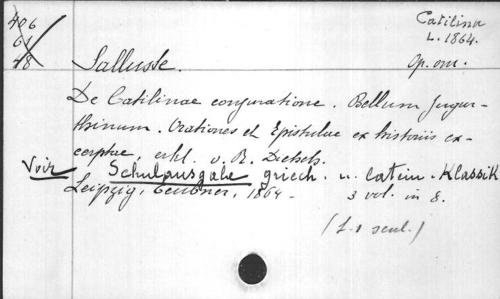 406
61
28
Catilina
L. 1864.
Salluste.
Op. om.
De Catilinae conjuratione. Bellum Jugur-
thinum. Orationes et Epistulae ex historiis ex-
cerptae, erkl. v. R. Dietsch.
Voir Schulausgabe griech. u. latein. Klassik
Leipzig, Teubner, 1864. 3 vol. in 8.
(L. 1 seul.)